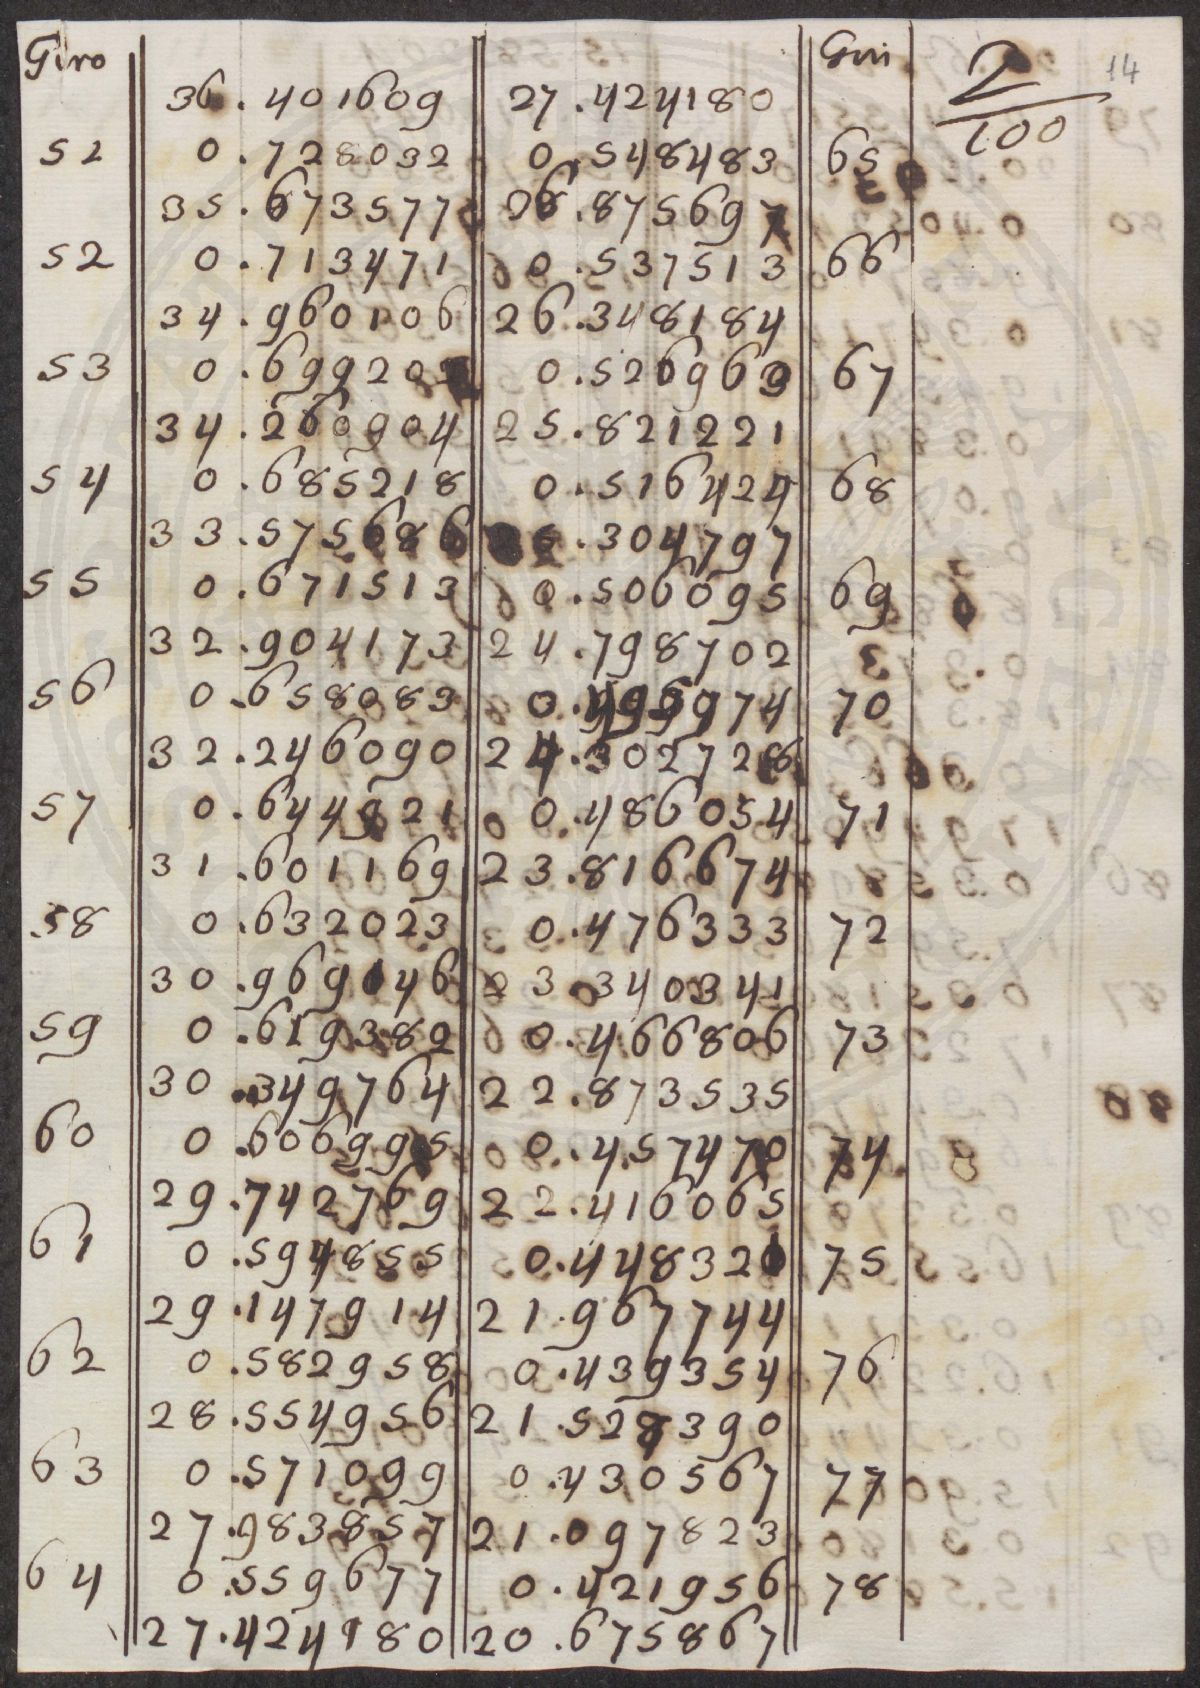 Giro Giri 2/100 14
36.401609 27.424180
51 0.728032 0.548483 65
35.673577 26.875697
52 0.713471 0.537513 66
34.960106 26.348184
53 0.699202 0.526963 67
34.260904 25.821221
54 0.685218 0.516424 68
33.575686 25.304797
55 0.671513 0.506095 69
32.904173 24.798702
56 0.658083 0.495974 70
32.246090 24.302728
57 0.644921 0.486054 71
31.601169 23.816674
58 0.632023 0.476333 72
30.969146 23.340341
59 0.619382 0.466806 73
30.349764 22.873535
60 0.606995 0.457470 74
29.742769 22.416065
61 0.594855 0.448321 75
29.147914 21.967744
62 0.582958 0.439354 76
28.554956 21.528390
63 0.571099 0.430567 77
27.983857 21.097823
64 0.559677 0.421956 78
27.424180 20.675867